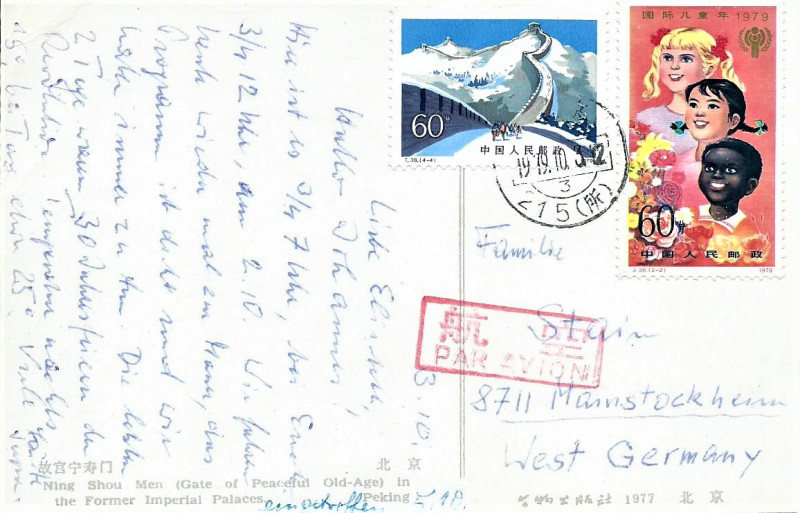 国际儿童年1979
60分
中国人民邮政
T.38.(4-4)
60分
中国人民邮政
J.38.(2-2) 1979
1979.10.
3
215(所)
航空
PAR AVION
Familie
Stein
8711 Mainstockheim
West Germany
3.10.
Liebe Elisabeth,
lieber Johannes,
Hier ist es 3/4 7 Uhr, bei Euch
3/4 12 Uhr am 2.10. Wir fahren
heute wieder mal zur Mauer, das
Programm ist dicht und wir
haben immer zu tun. Die letzten
2 Tage waren 30 Jahresfeiern der
Revolution. Temperatur nachts
15° bei Tag über 25° Viele Grüße
故宫宁寿门 北京
Ning Shou Men (Gate of Peaceful Old-Age) in
the Former Imperial Palaces. (Peking
eingetroffen
文物出版社 1977 北京